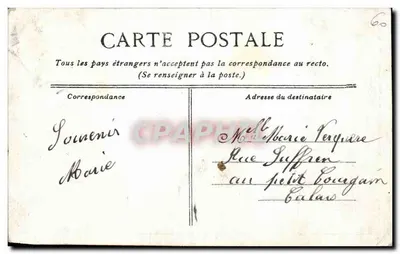 60
CARTE POSTALE
Tous les pays étrangers n'acceptent pas la correspondance au recto.
(Se renseigner à la poste.)
Correspondance
Souvenir
Marie
Adresse du destinataire
Melle Marie
Rue Suffren
au petit Courgain
Calais